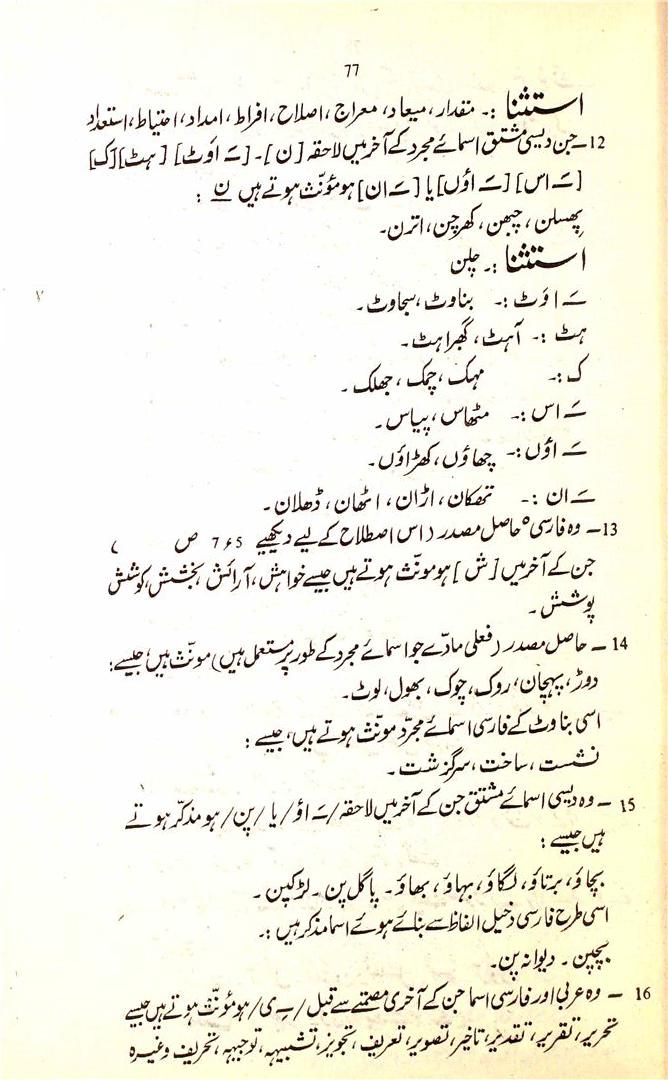 77
استثنا :۔ مقدار، میعاد، معراج، اصلاح، افراط، امداد، احتیاط، استعداد
12۔ جن دیسی مشتق اسمائے مجرد کے آخر میں لاحقہ [ن]۔ [ـَ اوٹ] [ہٹ] [ک]
[ـَ اس] [ـَ اؤں] یا [ـَ ان] ہو مؤنّث ہوتے ہیں ن :
پھسلن، چبھن، کھرچن، اترن۔
استثنا :۔ چلن
ـَ اوَٹ :۔ بناوٹ، سجاوٹ۔
ہٹ :۔ آہٹ، گھبراہٹ۔
ک :۔ مہک، چمک، جھلک۔
ـَ اس :۔ مٹھاس، پیاس۔
ـَ اؤں :۔ چھاؤں، کھڑاؤں۔
ـَ ان :۔ تھکان، اڑان، اٹھان، ڈھلان۔
13۔ وہ فارسی حاصل مصدر (اس اصطلاح کے لیے دیکھیے 7۶5 ص )
جن کے آخر میں [ش] ہو مونّث ہوتے ہیں جیسے خواہش، آرائش، بخشش، کوشش
پوشش۔
14۔ حاصل مصدر (فعلی مادّے جو اسمائے مجرد کے طور پر مستعمل ہیں) مونّث ہیں، جیسے:
دوڑ، پہچان، روک، چوک، بھول، لوٹ۔
اسی بناوٹ کے فارسی اسمائے مجرّد مونّث ہوتے ہیں، جیسے :
نشست، ساخت، سرگزشت۔
15۔ وہ دیسی اسمائے مشتق جن کے آخر میں لاحقہ /ـَ اؤ/ یا /پن/ ہو مذکّر ہوتے
ہیں جیسے :
بچاؤ، برتاؤ، لگاؤ، بہاؤ، بھاؤ۔ پاگل پن۔ لڑکپن۔
اسی طرح فارسی دخیل الفاظ سے بنائے ہوئے اسما مذکر ہیں :۔
بچپن۔ دیوانہ پن۔
16۔ وہ عربی اور فارسی اسما جن کے آخری مصمتے سے قبل /ـِ ی/ ہو مؤنّث ہوتے ہیں جیسے
تحریر، تقریر، تقدیر، تاخیر، تصویر، تعریف، تجویز، تشبیہہ، توجیہہ، تحریف وغیرہ